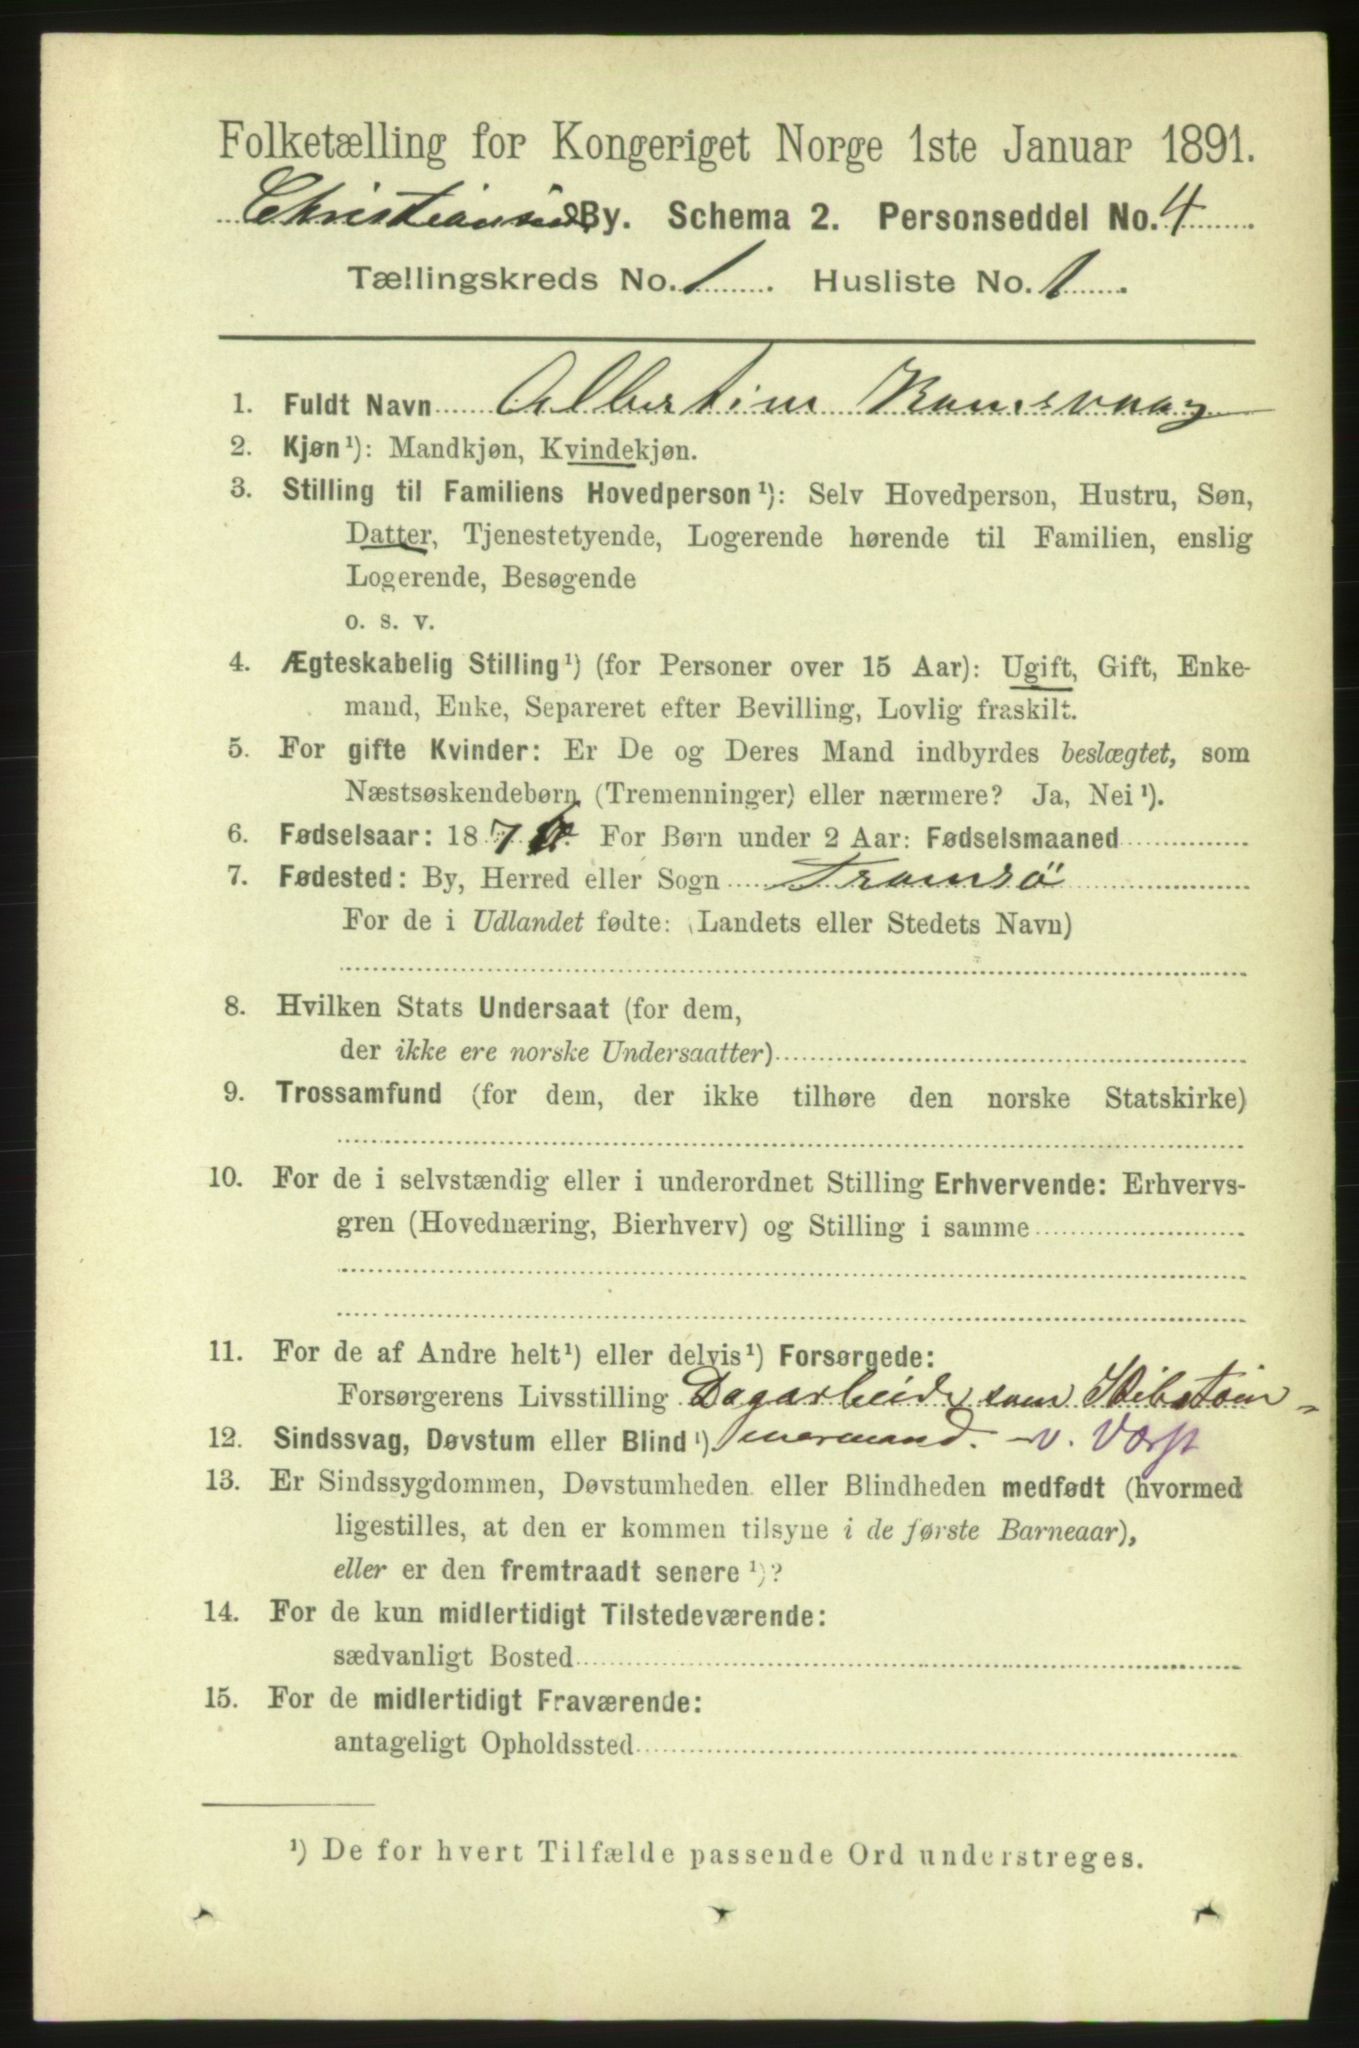 Folketælling for Kongeriget Norge 1ste Januar 1891.
Christiansund By. Schema 2. Personseddel No. 4
Tællingskreds No. 1. Husliste No. 1.
1. Fuldt Navn Albertine Ramsvaag
2. Kjøn ¹): Mandkjøn, Kvindekjøn.
3. Stilling til Familiens Hovedperson ¹): Selv Hovedperson, Hustru, Søn,
Datter, Tjenestetyende, Logerende hørende til Familien, enslig
Logerende, Besøgende
o. s. v.
4. Ægteskabelig Stilling ¹) (for Personer over 15 Aar): Ugift, Gift, Enke-
mand, Enke, Separeret efter Bevilling, Lovlig fraskilt.
5. For gifte Kvinder: Er De og Deres Mand indbyrdes beslægtet, som
Næstsøskendebørn (Tremenninger) eller nærmere? Ja, Nei ¹).
6. Fødselsaar: 187 For Børn under 2 Aar: Fødselsmaaned
7. Fødested: By, Herred eller Sogn Tromsö
For de i Udlandet fødte: (Landets eller Stedets Navn)
8. Hvilken Stats Undersaat (for dem,
der ikke ere norske Undersaatter)
9. Trossamfund (for dem, der ikke tilhøre den norske Statskirke)
10. For de i selvstændig eller i underordnet Stilling Erhvervende: Erhvervs-
gren (Hovednæring, Bierhverv) og Stilling i samme
11. For de af Andre helt ¹) eller delvis ¹) Forsørgede:
Forsørgerens Livsstilling Dagarbeide som Skibstöm-
12. Sindssvag, Døvstum eller Blind ¹) mermand. v. Værft
13. Er Sindssygdommen, Døvstumheden eller Blindheden medfødt (hvormed
ligestilles, at den er kommen tilsyne i de første Barneaar),
eller er den fremtraadt senere ¹)?
14. For de kun midlertidigt Tilstedeværende:
sædvanligt Bosted
15. For de midlertidigt Fraværende:
antageligt Opholdssted
¹) De for hvert Tilfælde passende Ord understreges.